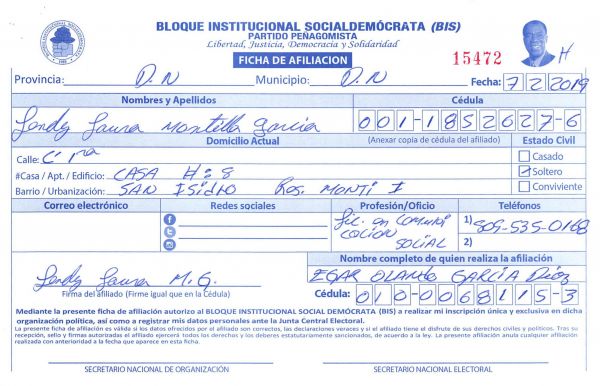 BLOQUE INSTITUCIONAL SOCIALDEMÓCRATA (BIS)
PARTIDO PEÑAGOMISTA
Libertad, Justicia, Democracia y Solidaridad
FICHA DE AFILIACION
15472
H
Provincia: D.N Municipio: D.N Fecha: 7 2 2019
Nombres y Apellidos Cédula
Lendy Laura Montilla García 001-1852627-6
Domicilio Actual (Anexar copia de cédula del afiliado) Estado Civil
Calle: C 1ra Casado
#Casa / Apt. / Edificio: CASA #8 Soltero
Barrio / Urbanización: SAN Isidro Res. MONTI I Conviviente
Correo electrónico Redes sociales Profesión/Oficio Teléfonos
Lic. en COMUNI 1) 809-535-0168
CACION
SOCIAL 2)
Nombre completo de quien realiza la afiliación
Lendy Laura M. G. GARCÍA
Firma del afiliado (Firme igual que en la Cédula) Cédula: 010-0068115-3
Mediante la presente ficha de afiliación autorizo al BLOQUE INSTITUCIONAL SOCIAL DEMÓCRATA (BIS) a realizar mi inscripción única y exclusiva en dicha
organización política, así como a registrar mis datos personales ante la Junta Central Electoral.
La presente ficha de afiliación es válida si los datos ofrecidos por el afiliado son correctos, las declaraciones veraces y si el afiliado tiene el disfrute de sus derechos civiles y políticos. Tras su
recepción, sello y firmas autorizadas el afiliado ejercerá todos los derechos y los deberes estatutariamente sancionados, de acuerdo a la ley. La presente afiliación anula cualquier afiliación
realizada con anterioridad a la fecha que aparece en esta ficha.
SECRETARIO NACIONAL DE ORGANIZACIÓN SECRETARIO NACIONAL ELECTORAL